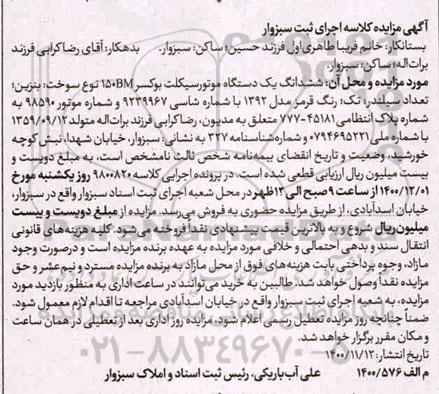 آگهی مزایده کلاسه اجرای ثبت سبزوار
بستانکار: خانم فریبا طاهری اول فرزند حسین؛ ساکن: سبزوار. بدهکار: آقای رضا کرابی فرزند
برات‌اله؛ ساکن: سبزوار.
مورد مزایده و محل آن: ششدانگ یک دستگاه موتورسیکلت بوکسر ۱۵۰BM نوع سوخت: بنزین؛
تعداد سیلندر: تک؛ رنگ قرمز مدل ۱۳۹۲ با شماره شاسی ۹۲۳۹۹۶۷ و شماره موتور ۹۸۵۹۰ به
شماره پلاک انتظامی ۴۵۱۸۱-۷۷۷ متعلق به مدیون، رضا کرابی فرزند برات‌اله متولد ۱۳۵۹/۰۹/۱۲
با شماره ملی ۰۷۹۴۶۹۵۲۲۱ و شماره شناسنامه ۳۲۷ به نشانی: سبزوار، خیابان شهدا، نبش کوچه
خورشید، وضعیت و تاریخ انقضای بیمه‌نامه شخص ثالث نامشخص است، به مبلغ دویست و
بیست میلیون ریال ارزیابی قطعی شده است. در پرونده اجرایی کلاسه ۹۸۰۰۸۲۰ روز یکشنبه مورخ
۱۴۰۰/۱۲/۰۱ از ساعت ۹ صبح الی ۱۲ ظهر در محل شعبه اجرای ثبت اسناد سبزوار واقع در سبزوار،
خیابان اسدآبادی، از طریق مزایده حضوری به فروش می‌رسد. مزایده از مبلغ دویست و بیست
میلیون ریال شروع و به بالاترین قیمت پیشنهادی نقداً فروخته می‌شود. کلیه هزینه‌های قانونی
انتقال سند و بدهی احتمالی و خلافی مورد مزایده به عهده برنده مزایده است و درصورت وجود
مازاد، وجوه پرداختی بابت هزینه‌های فوق از محل مازاد به برنده مزایده مسترد و نیم‌عشر و حق
مزایده نقداً وصول خواهد شد. طالبین به خرید می‌توانند در ساعت اداری به منظور بازدید مورد
مزایده، به شعبه اجرای ثبت سبزوار واقع در خیابان اسدآبادی مراجعه تا اقدام لازم معمول شود.
ضمناً چنانچه روز مزایده تعطیل رسمی اعلام شود، مزایده روز اداری بعد از تعطیلی در همان ساعت
و مکان مقرر برگزار خواهد شد.
تاریخ انتشار: ۱۴۰۰/۱۱/۱۲
م الف ۱۴۰۰/۵۷۶ علی آب‌باریکی، رئیس ثبت اسناد و املاک سبزوار
۰۲۱-۸۸۳۴۹۶۷۰-۵